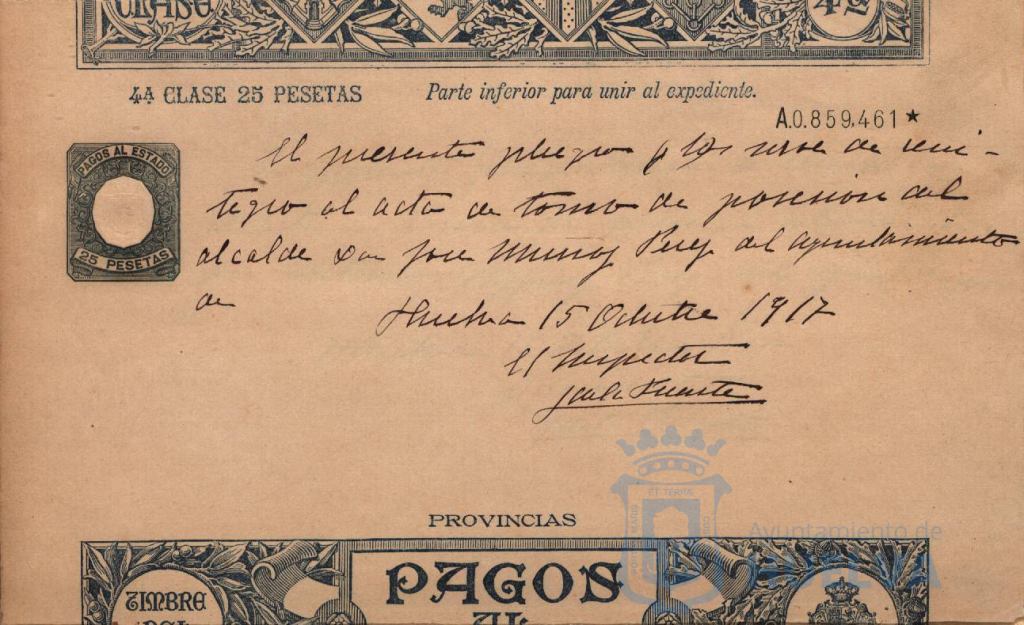 CLASE 4ª
4ª CLASE 25 PESETAS Parte inferior para unir al expediente.
A.0.859.461★
PAGOS AL ESTADO
25 PESETAS
El presente pliego de rein-
tegro al acta de toma de posesion del
alcalde Don Jose Muñoz Perez del ayuntamiento
de
Huelva 15 Octubre 1917
El Inspector
PROVINCIAS
PORTUS MARIS ET TERRAE CUSTODIA
Ayuntamiento de
HUELVA
TIMBRE
DEL
PAGOS
AL